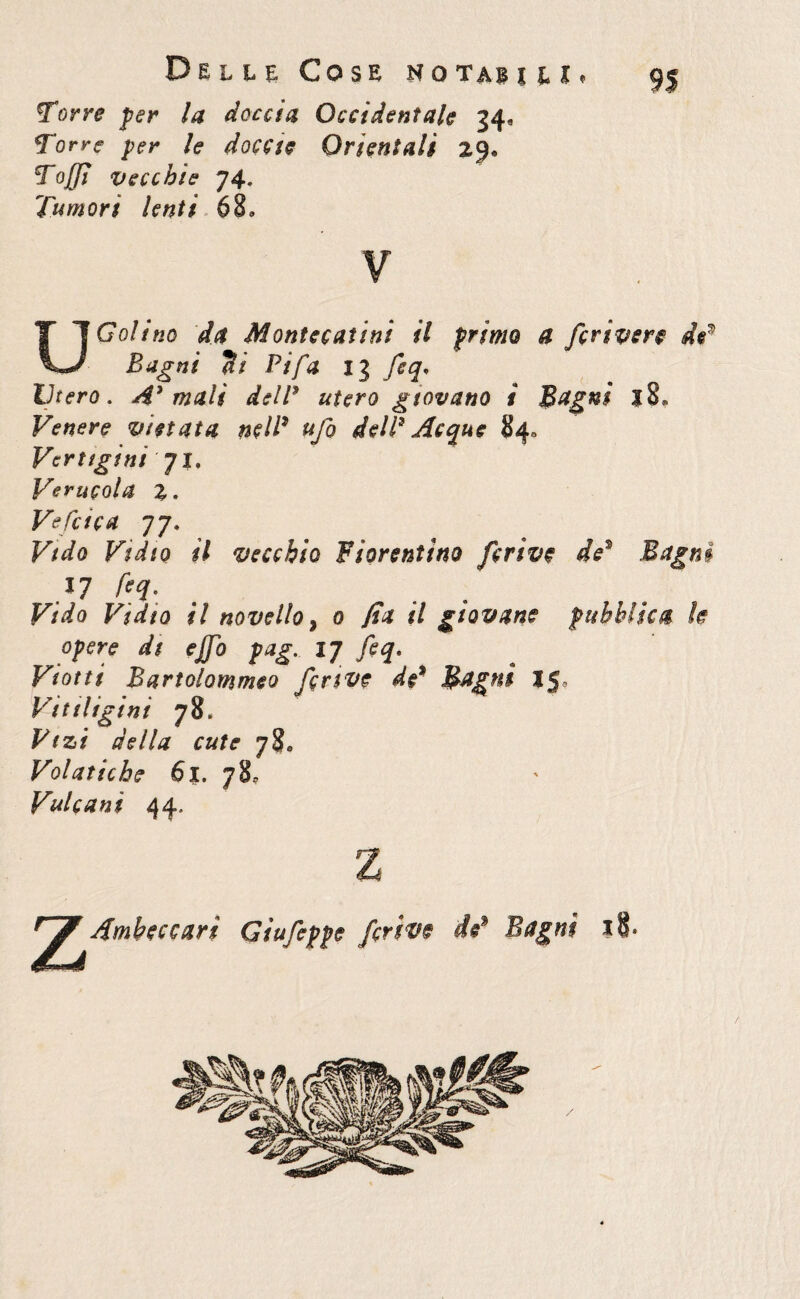 DELLE COSE NOTABILI. 95
Torre per la doccia Occidentale 34.
Torre per le doccie Orientali 29.
Toſſi vecchie 74.
Tumori lenti 68.
V
UGolino da Montecatini il primo a ſcrivere de'
Bagni di Piſa 13 ſeq.
Utero. A' mali dell' utero giovano i Bagni 18.
Venere vietata nell' uſo dell' Acque 84.
Vertigini 71.
Verucola 2.
Veſcica 77.
Vido Vidio il vecchio Fiorentino ſcrive de' Bagni
17 ſeq.
Vido Vidio il novello, o ſia il giovane pubblica le
opere di eſſo pag. 17 ſeq.
Viotti Bartolommeo ſcrive de' Bagni 15.
Vitiligini 78.
Vizi della cute 78.
Volatiche 61. 78.
Vulcani 44.
Z
ZAmbeccari Giuſeppe ſcrive de' Bagni 18.